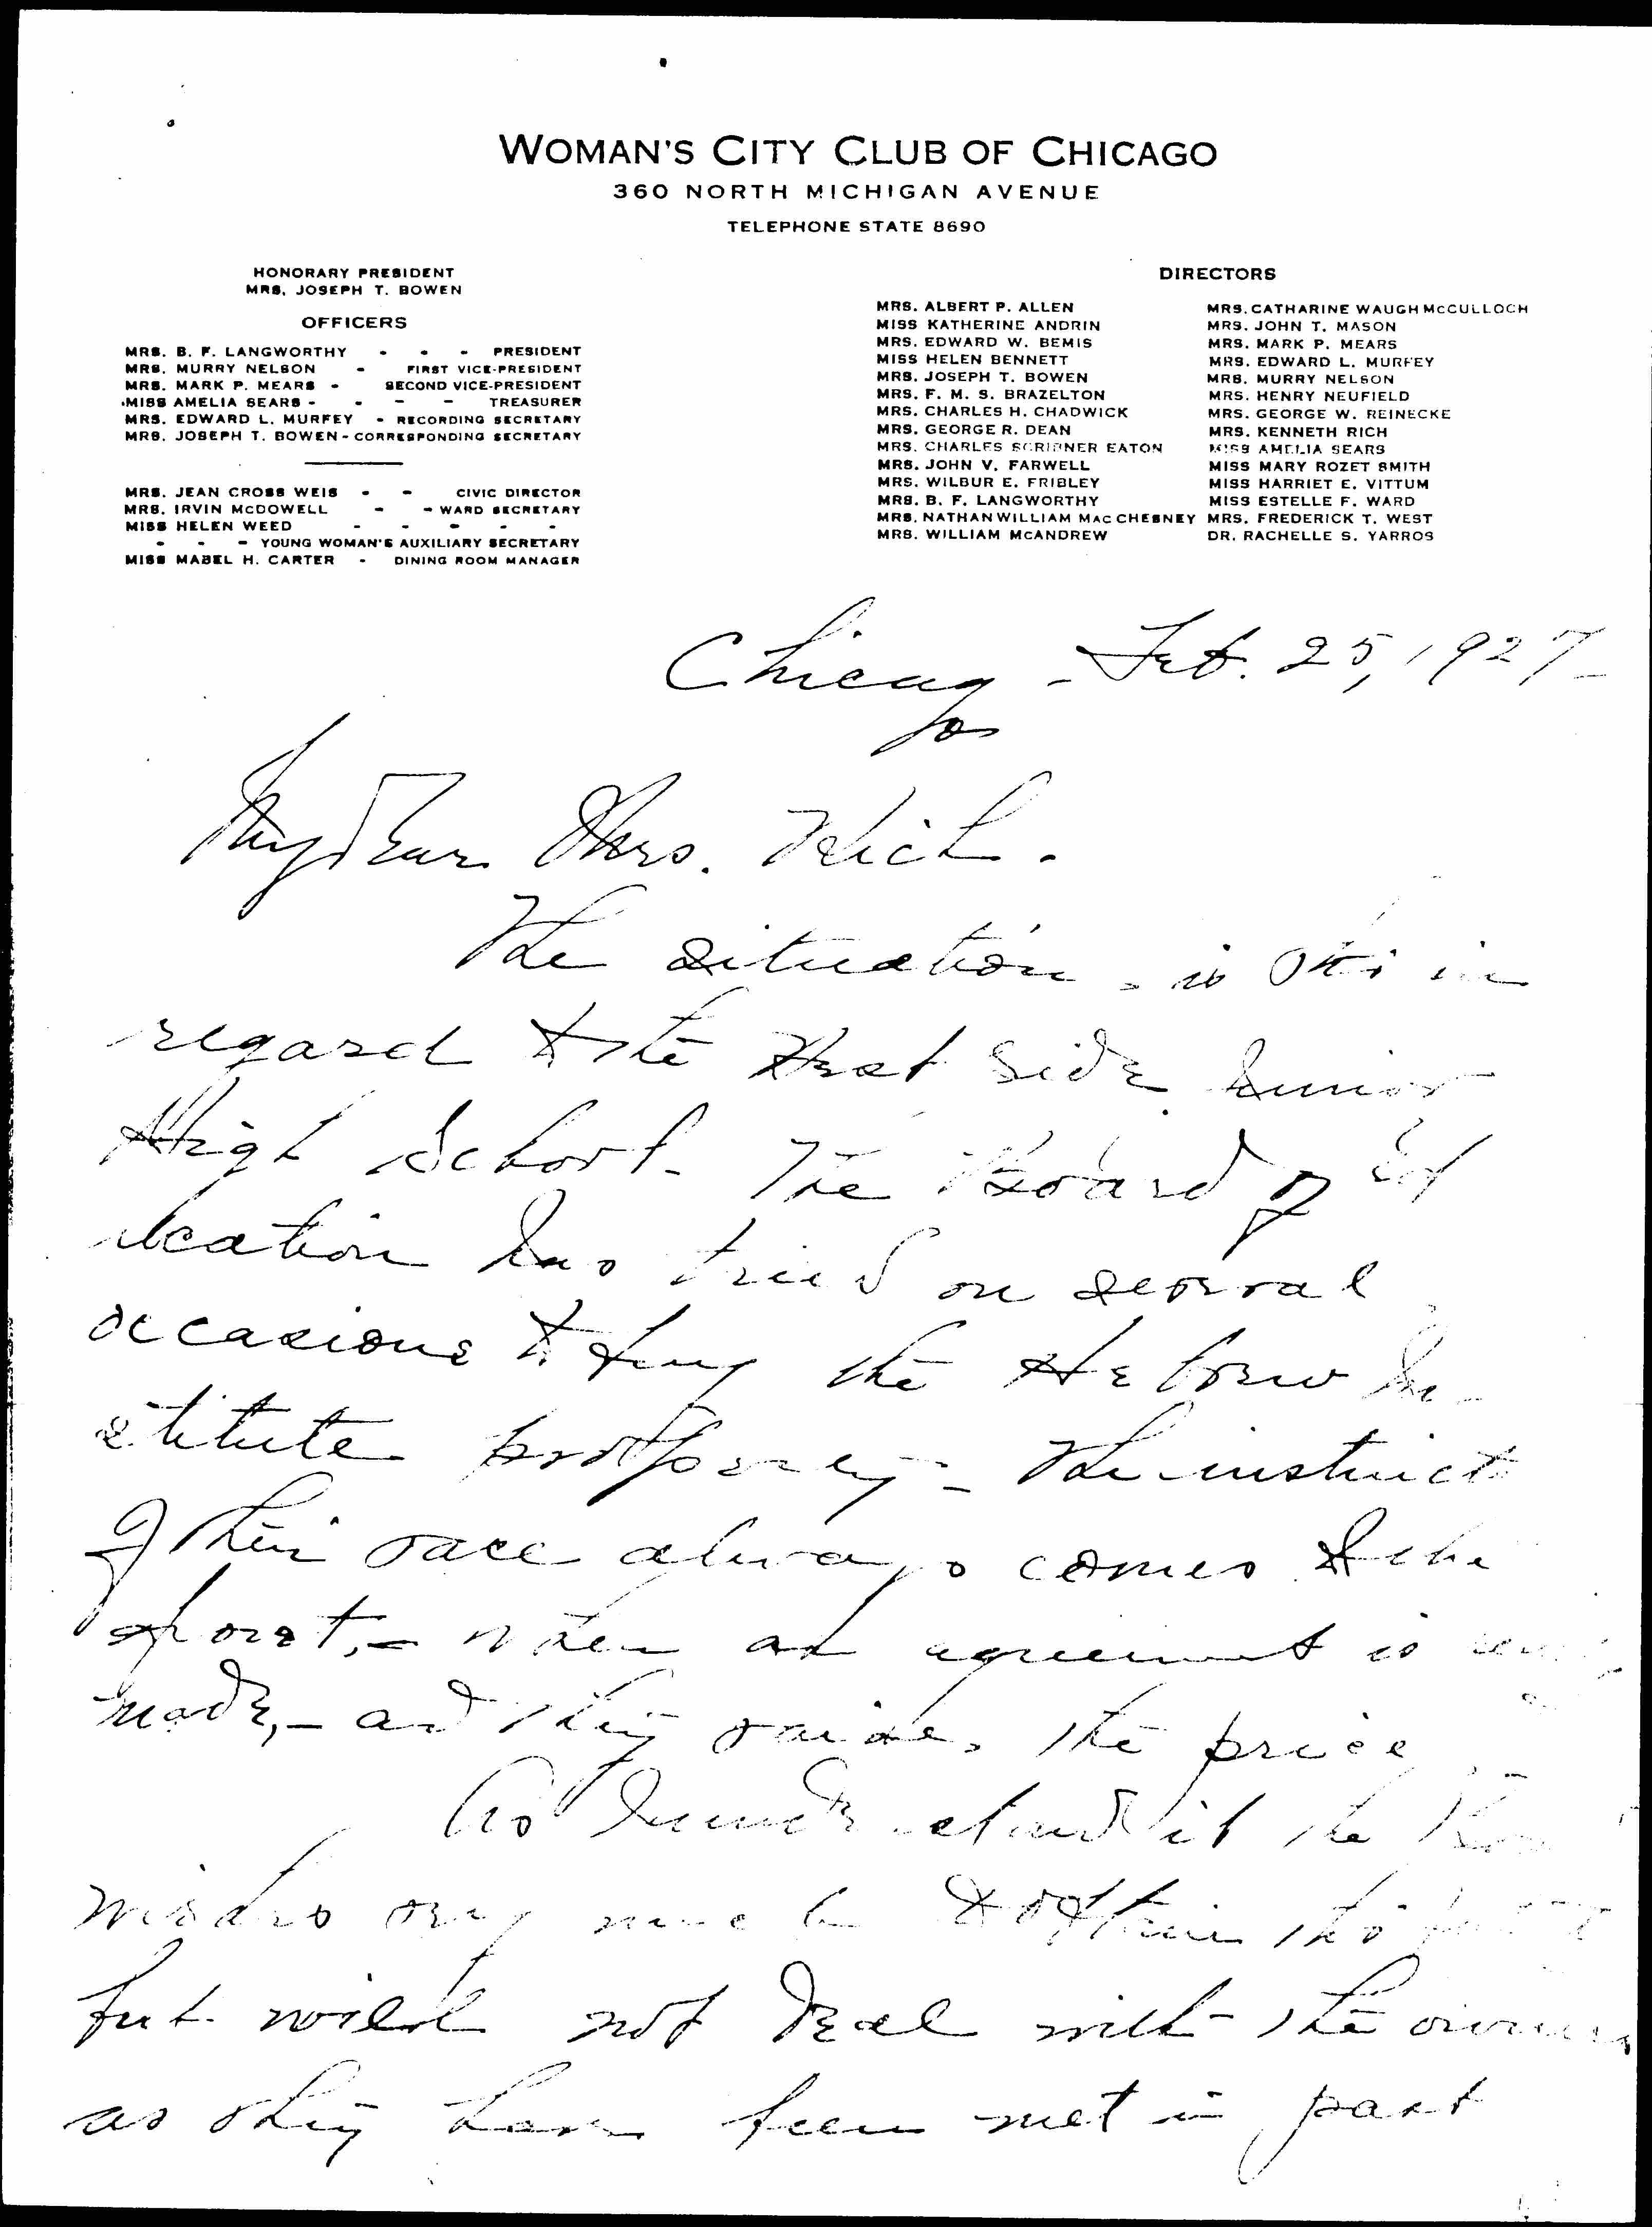 WOMAN'S CITY CLUB OF CHICAGO
360 NORTH MICHIGAN AVENUE
TELEPHONE STATE 8690
HONORARY PRESIDENT
MRS. JOSEPH T. BOWEN
OFFICERS
MRS. B. F. LANGWORTHY - - - PRESIDENT
MRS. MURRY NELSON - FIRST VICE-PRESIDENT
MRS. MARK P. MEARS - SECOND VICE-PRESIDENT
MISS AMELIA SEARS - - - - TREASURER
MRS. EDWARD L. MURFEY - RECORDING SECRETARY
MRS. JOSEPH T. BOWEN - CORRESPONDING SECRETARY
MRS. JEAN CROSS WEIS - - CIVIC DIRECTOR
MRS. IRVIN McDOWELL - - WARD SECRETARY
MISS HELEN WEED - - - - -
- - - YOUNG WOMAN'S AUXILIARY SECRETARY
MISS MABEL H. CARTER - DINING ROOM MANAGER
DIRECTORS
MRS. ALBERT P. ALLEN
MISS KATHERINE ANDRIN
MRS. EDWARD W. BEMIS
MISS HELEN BENNETT
MRS. JOSEPH T. BOWEN
MRS. F. M. S. BRAZELTON
MRS. CHARLES H. CHADWICK
MRS. GEORGE R. DEAN
MRS. CHARLES SCRIBNER EATON
MRS. JOHN V. FARWELL
MRS. WILBUR E. FRIBLEY
MRS. B. F. LANGWORTHY
MRS. NATHAN WILLIAM MACCHESNEY
MRS. WILLIAM McANDREW
MRS. CATHARINE WAUGH McCULLOCH
MRS. JOHN T. MASON
MRS. MARK P. MEARS
MRS. EDWARD L. MURFEY
MRS. MURRY NELSON
MRS. HENRY NEUFIELD
MRS. GEORGE W. REINECKE
MRS. KENNETH RICH
MISS AMELIA SEARS
MISS MARY ROZET SMITH
MISS HARRIET E. VITTUM
MISS ESTELLE F. WARD
MRS. FREDERICK T. WEST
DR. RACHELLE S. YARROS
Chicago - Feb. 25, 1927-
My Dear Mrs. Rich.
The situation - is this in
regard to the West Side Junior
High School. The Board of Ed
ucation has tried on several
occasions to buy the Hebrew In-
stitute property - The instinct
of their race always comes to the
front, - when an agreement is
made, - and they raise, the price
As I understand it the
wishes very much to obtain this
but will not deal with the owners
as they have been met in past